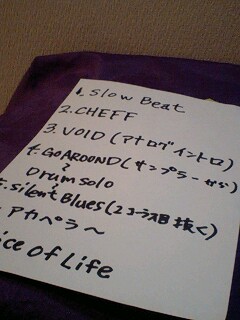 1. Slow Beat
2. CHEFF
3. VOID (アナログイントロ)
4. GO AROUND (サンプラーから)
Drum solo
5. Silent Blues (2コーラス目抜く)
アカペラ〜
ice of Life